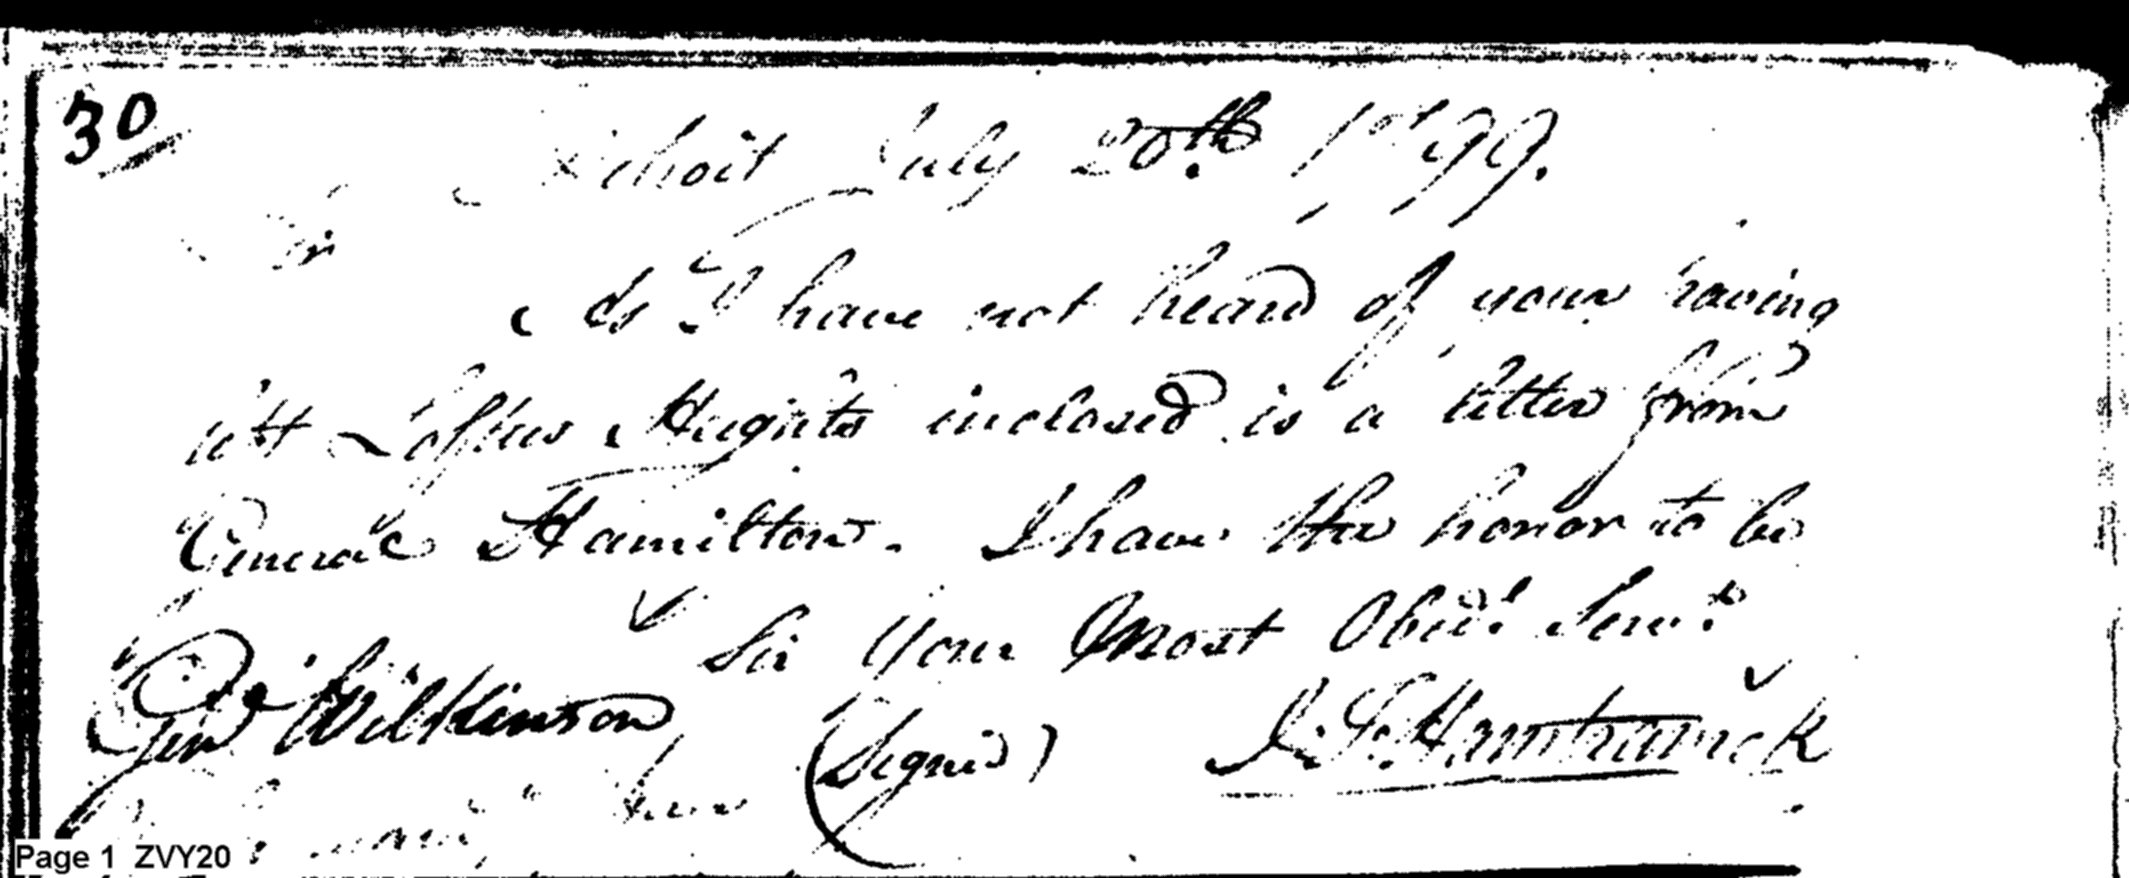 30
Detroit July 20th 1799.
Sir
As I have not heard of your having
left Loftus Heights inclosed is a letter from
General Hamilton. I have the honor to be
Sir Your Most Obed.t Serv.t
Genl Wilkinson (Signed) J. F. Hamtramck
Page 1 ZVY20